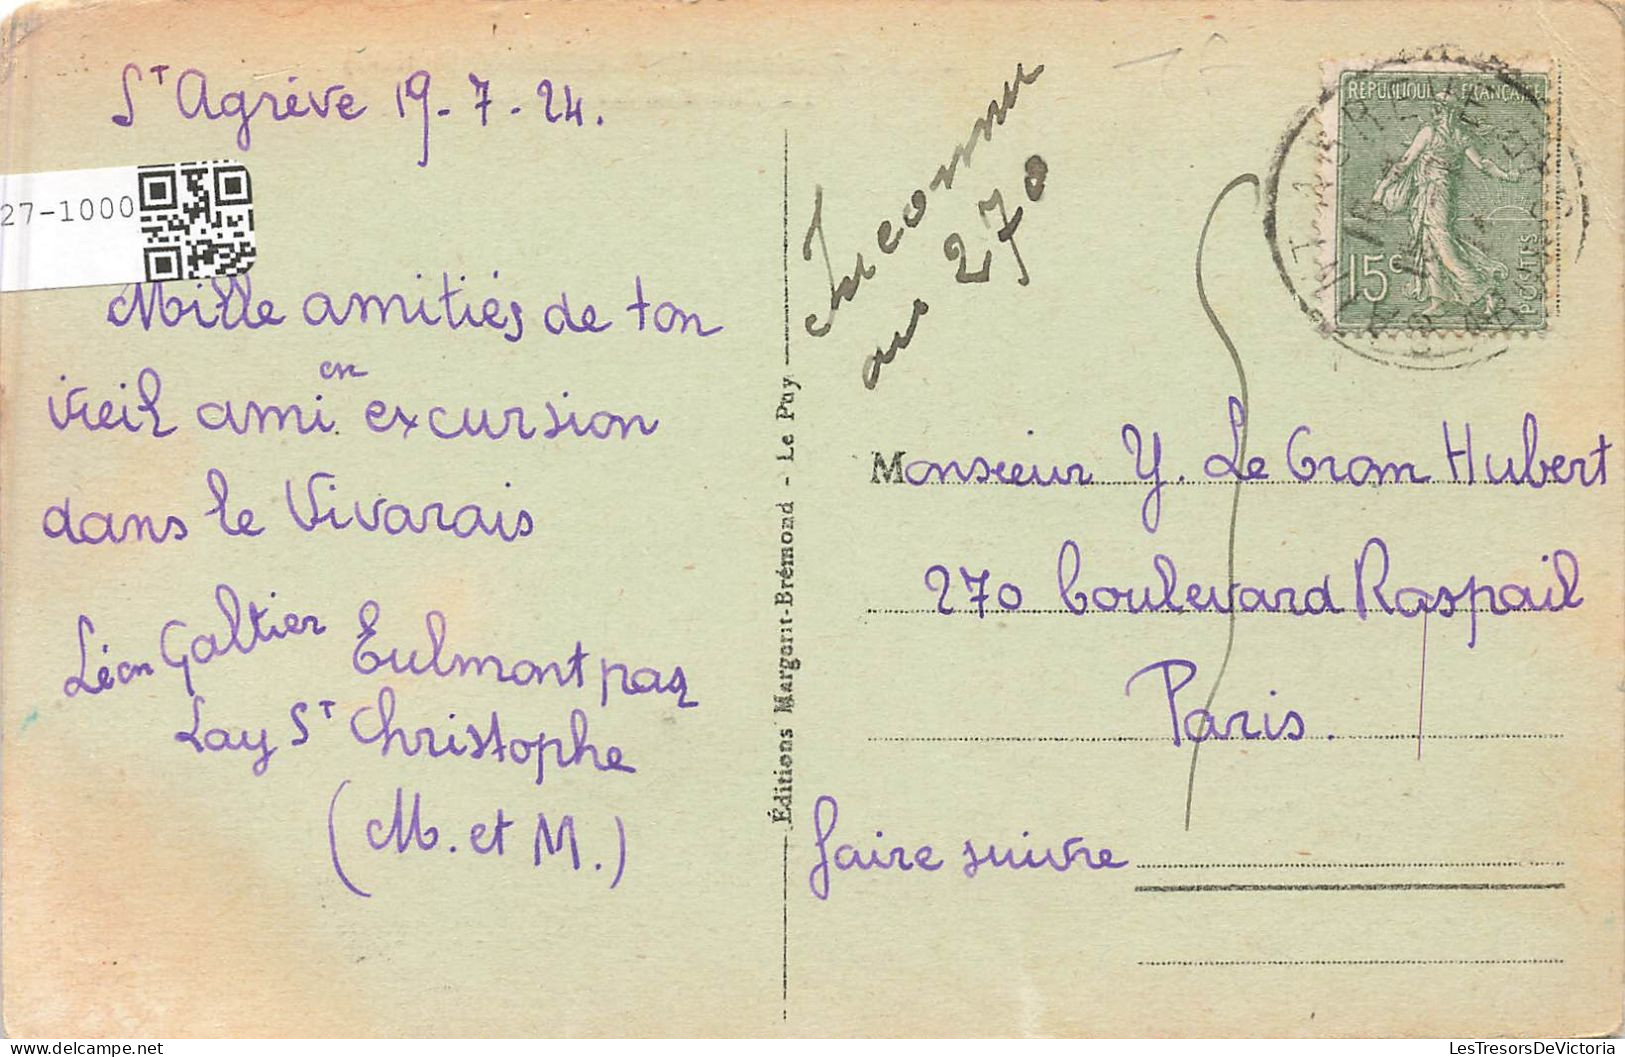 St Agrève 19-7-24.
27-1000
Mille amitiés de ton
vieil ami en excursion
dans le Vivarais
Léon Galtier Eulmont par
Lay St Christophe
(M. et M.)
Éditions Margerit-Brémond - Le Puy
Inconnu
au 270
REPUBLIQUE FRANÇAISE
15c
POSTES
Monsieur Y. Le Gram Hubert
270 boulevard Raspail
Paris.
faire suivre
LesTresorsDeVictoria